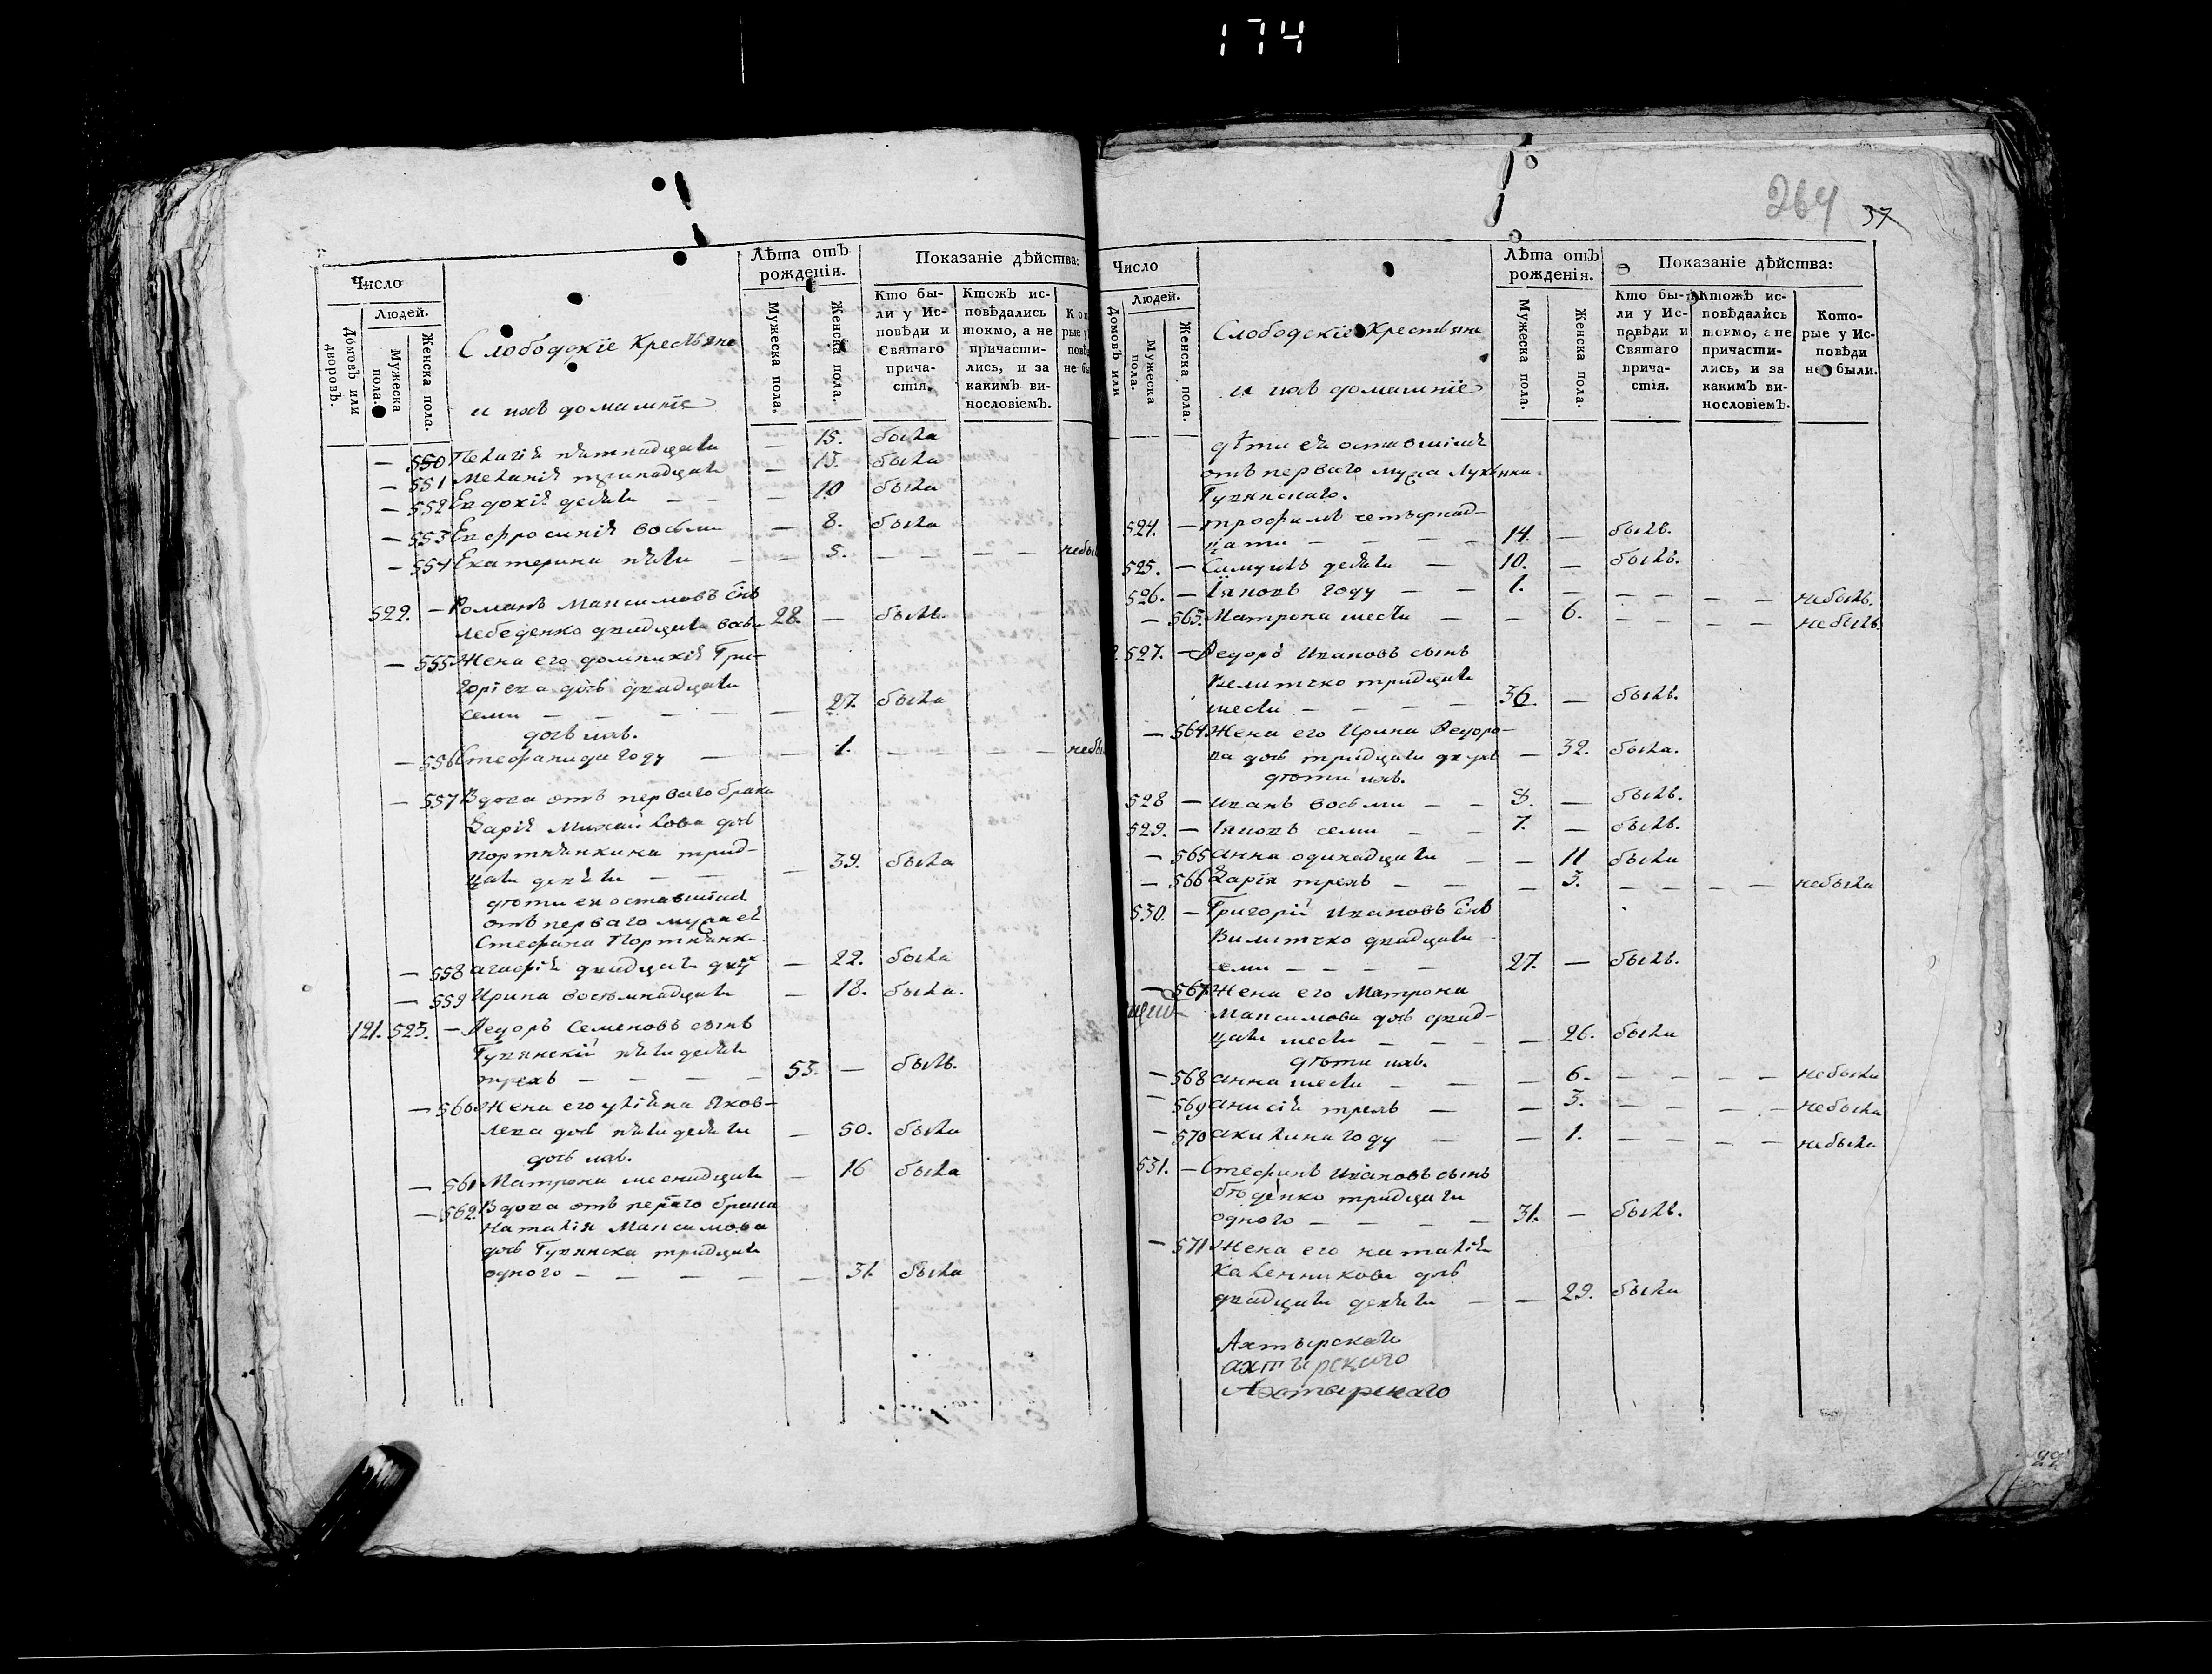 174
Число
Людей.
Домовъ или дворовъ.
Мужеска пола.
Женска пола.
Слободскіе Крестьяне
и ихъ домашніе
Лѣта отъ рожденія.
Мужеска пола.
Женска пола.
Показаніе дѣйства:
Кто были у Исповѣди и Святаго причастія.
Ктожъ исповѣдались токмо, а не причастились, и за какимъ винословіемъ.
— 550 Пелагія пятнадцати — 15. была
— 551 Меланія тринадцати — 13. была
— 552 Евдокія десяти — — — 10 была
— 553 Евфросинія восьми — 8. была
— 554 Екатерина пяти — — 5. — — — — небы
522. — Романъ Максимовъ снъ
Лебеденко двадцати вось 28. — былъ.
— 555 Жена его домникія Гри-
горіева дочь двадцати
семи — — — — — 27. была
дочь ихъ.
— 556 Стефанида году — — 1. — — — — небы
— 557 Вдова отъ перваго брака
Дарія Михайлова дочь
портянкина трид-
цати девяти — — — 39. была
дѣти ея оставшіися
отъ перваго мужа ей
Стефана Портянк-
— 558 агафія двадцати двух — 22. была
— 559 Ирина восемнадцати — 18. была.
121. 523. — Федоръ Семеновъ сынъ
Гупянскій пятидесяти
трехъ — — — — 53. — былъ.
— 560 Жена его уліяна Яков-
лева дочь пятидесяти — 50. была
дочь ихъ.
— 561 Матрона шеснадцати — 16 была
— 562. Вдова отъ перваго брака
Наталія Максимова
дочь Гупянска тридцати
одного — — — — — 31. была
264 37
Число
Людей.
Домовъ или
Мужеска пола.
Женска пола.
Слободскіе Крестьяне
и ихъ домашніе
Лѣта отъ рожденія.
Мужеска пола.
Женска пола.
Показаніе дѣйства:
Кто были у Исповѣди и Святаго причастія.
Ктожъ исповѣдались токмо, а не причастились, и за какимъ винословіемъ.
Которые у Исповѣди не были.
дѣти ея оставшіися
отъ перваго мужа Лукьяна
Гупянскаго.
524. — трофимъ четырнад-
цати — — — — 14. — былъ.
525. — Самуилъ десяти — 10. — былъ.
526. — Іяковъ году — — 1. — — — — — небылъ.
— 563. Матрона шести — — 6. — — — — небылъ.
527. — Федоръ Ивановъ сынъ
Велитчко тридцати
шести — — — — 36. — былъ.
— 564 Жена его Ирина Федоро-
ва дочь тридцати двухъ — 32. была.
дѣти ихъ.
528 — иванъ восьми — — 8. — былъ.
529. — Іяковъ семи — — 7. — былъ.
— 565 анна одинадцати — — 11 была
— 566 Дарія трехъ — — — 3. — — — — небыла
530. — Григорій Ивановъ снъ
Вилитчко двадцати
семи — — — — 27. — былъ.
— 567 Жена его Матрона
Максимова дочь двад-
цати шести — — — — 26. была
дѣти ихъ.
— 568 анна шести — — — 6. — — — — небыла
— 569 анисія трехъ — — 3. — — — — небыла
— 570 акилина году — — 1. — — — — небыла
531. — Стефанъ Ивановъ сынъ
бѣденко тридцати
одного — — — — 31. — былъ.
— 571 Жена его наталія
Каленникова дочь
двадцати девяти — — 29. была
Ахтырскаго
ахтырскаго
Ахтырскаго